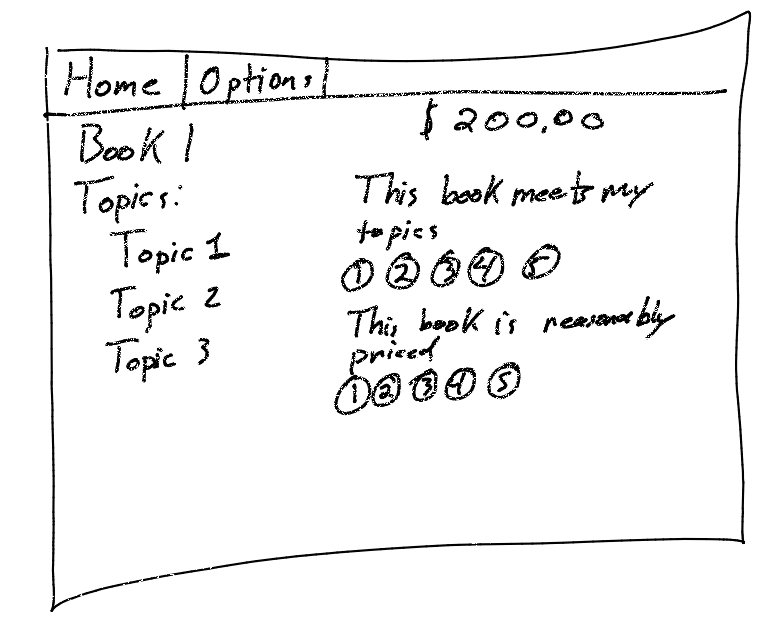 Home Options
Book 1 $ 200.00
Topics:
Topic 1
Topic 2
Topic 3
This book meets my
topics
1 2 3 4 5
This book is reasonably
priced
1 2 3 4 5